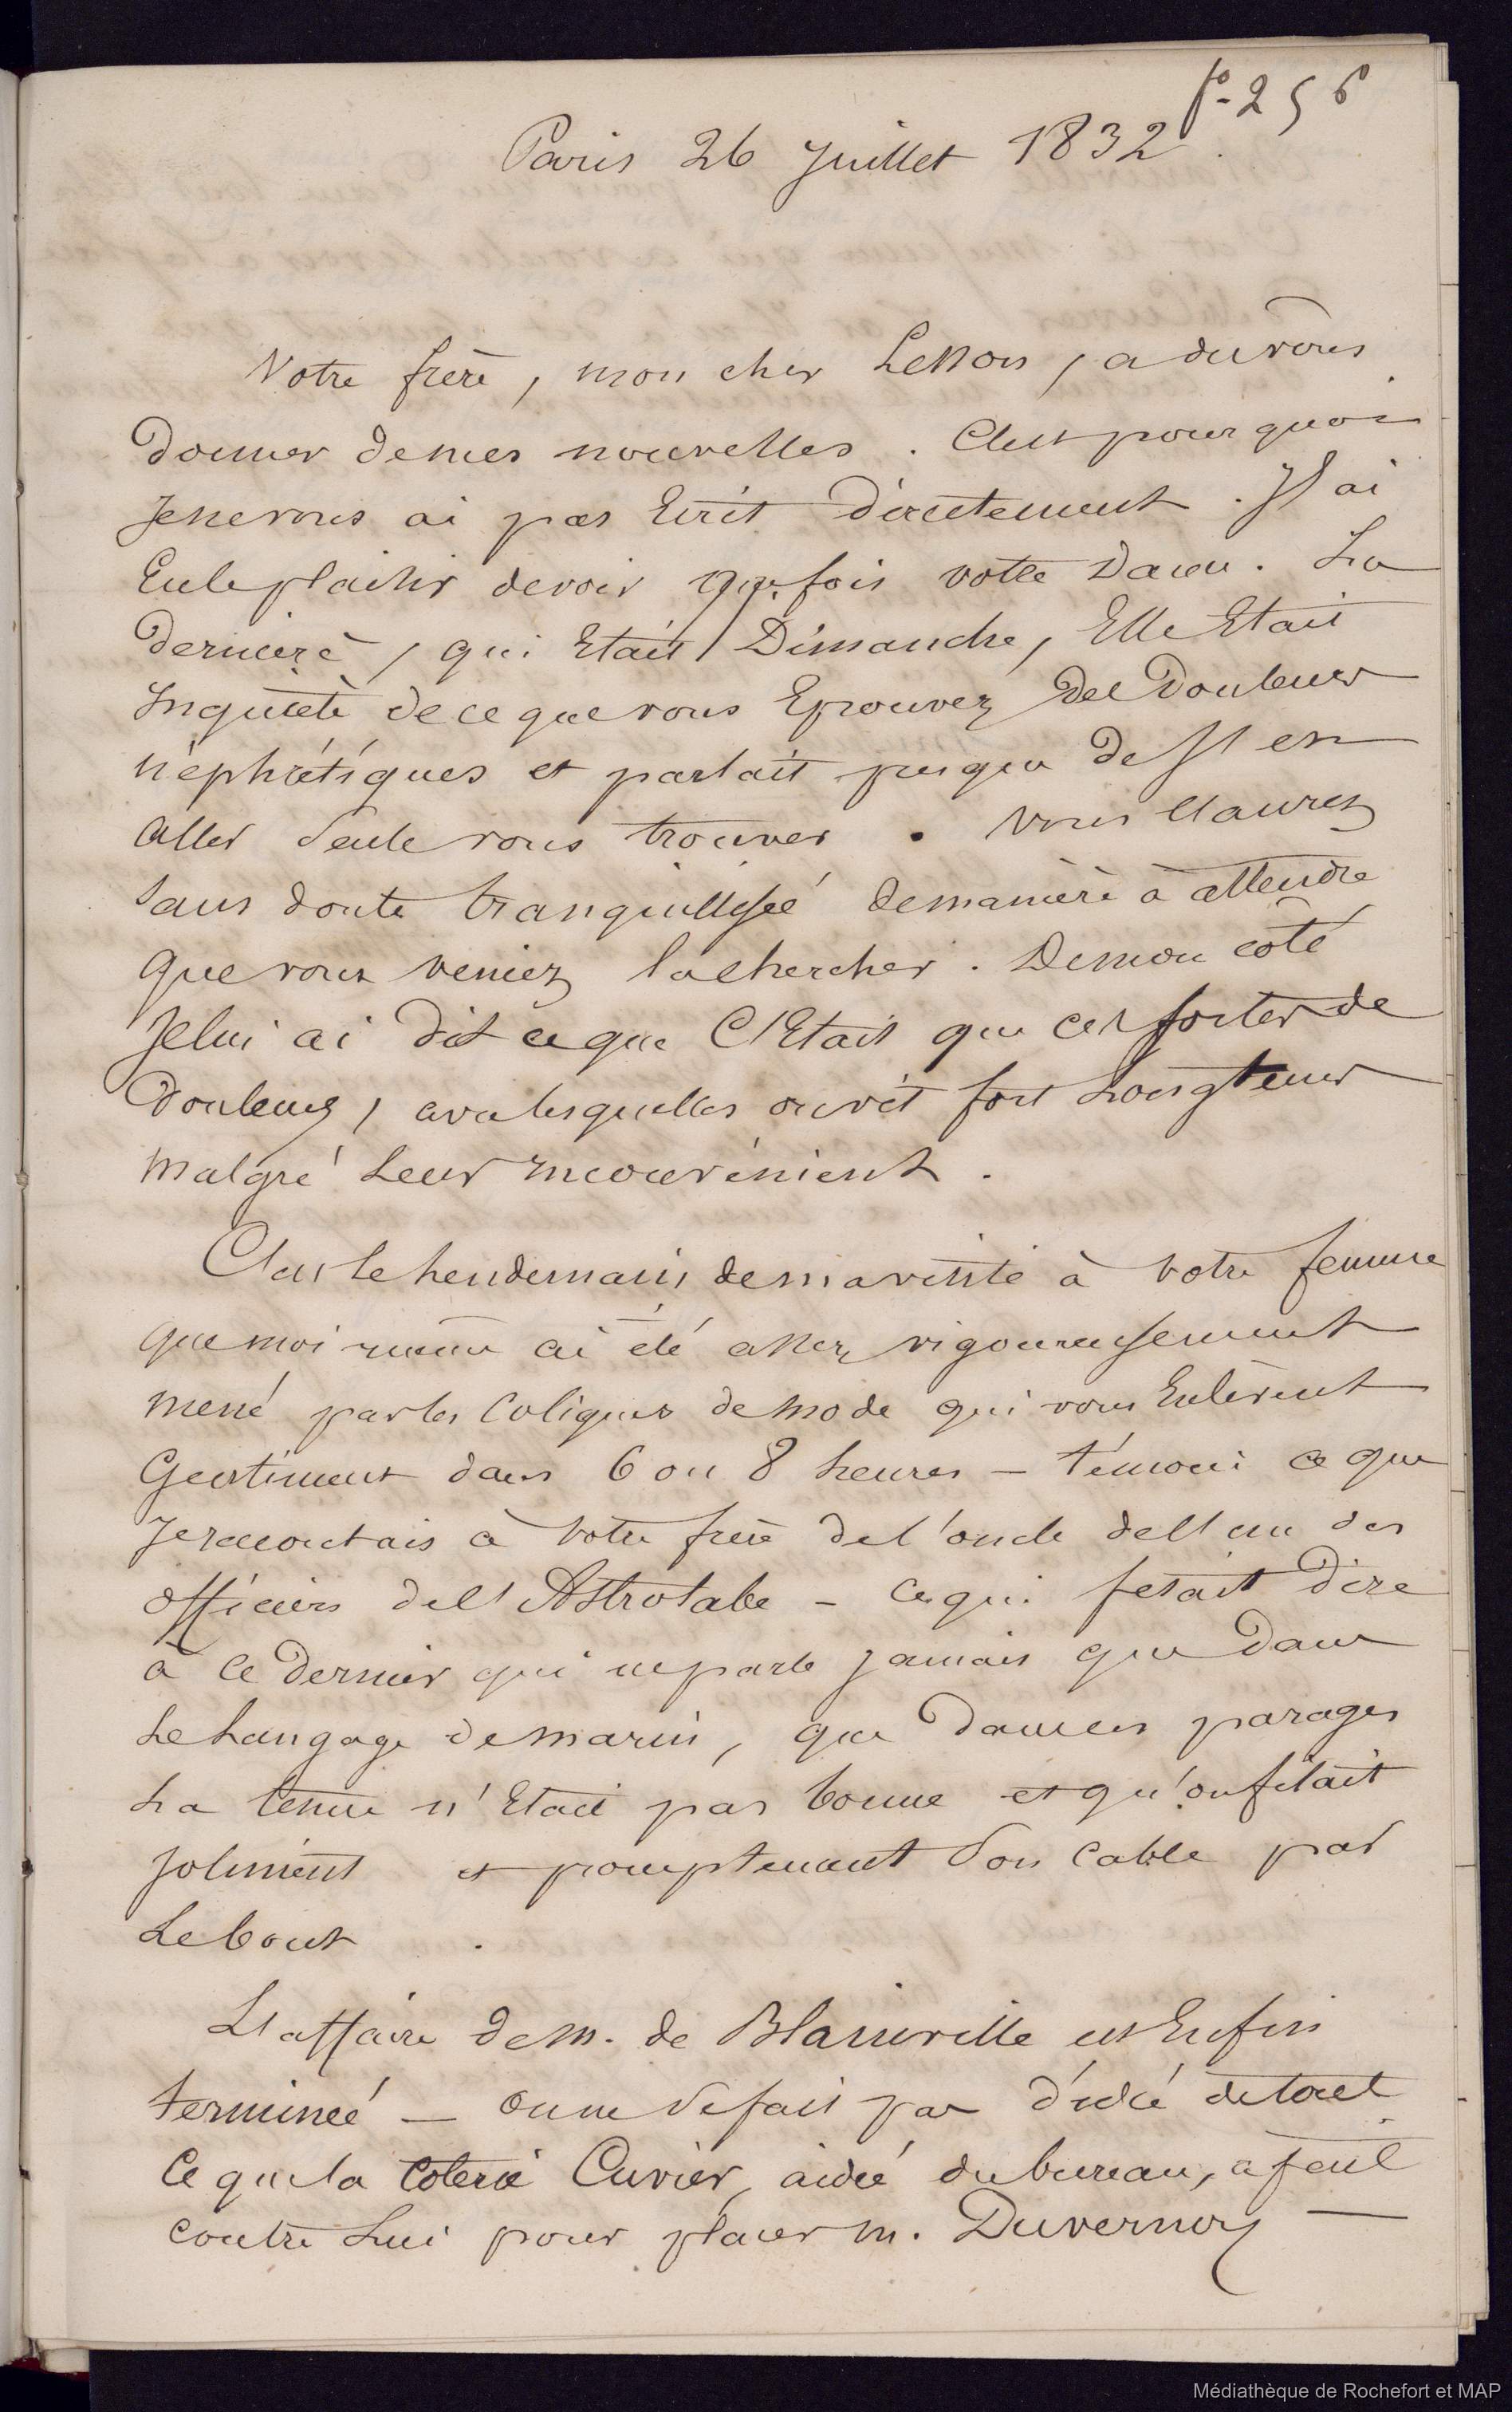 fo- 256
Paris 26 Juillet 1832.
Votre frère, mon cher Lesson, a du vous
donner de mes nouvelles. C'est pourquoi
Je ne vous ai pas Ecrit directement. J'ai
Eu le plaisir de voir qq. fois votre Dame. La
dernière, qui Etait Dimanche, Elle Etait
Inquiète de ce que vous Eprouvez des Douleurs
néphrétiques et parlait presque de s'en
aller seule vous trouver. Vous l'aurez
sans doute tranquillisée de manière à attendre
que vous veniez la chercher. De mon côté
Je lui ai dit ce que C'Etait que ces sortes de
douleurs, avec lesquelles on vit fort Longtems
malgré Leur Inconvénient.
C'est le Lendemain de ma visite à votre femme
que moi même ai été assez vigoureusement
mené par les Coliques de mode qui vous Enlèvent
Gentiment dans 6 ou 8 heures - témoin ce que
Je racontais à votre frère de l'oncle de l'un des
officiers de l'Astrolabe - ce qui fesait dire
à ce dernier qui ne parle jamais que dans
Le Langage de marin, que dans ces parages
La tenue n'Etait pas bonne et qu'on filait
joliment et promptement son cable par
Le bout.
L'affaire de m. de Blainville est Enfin
terminée — on ne se fait pas d'idée de tout
Ce que la Coterie Cuvier, aidée du bureau, a fait
contre Lui pour placer m. Duvernoy —
Médiathèque de Rochefort et MAP